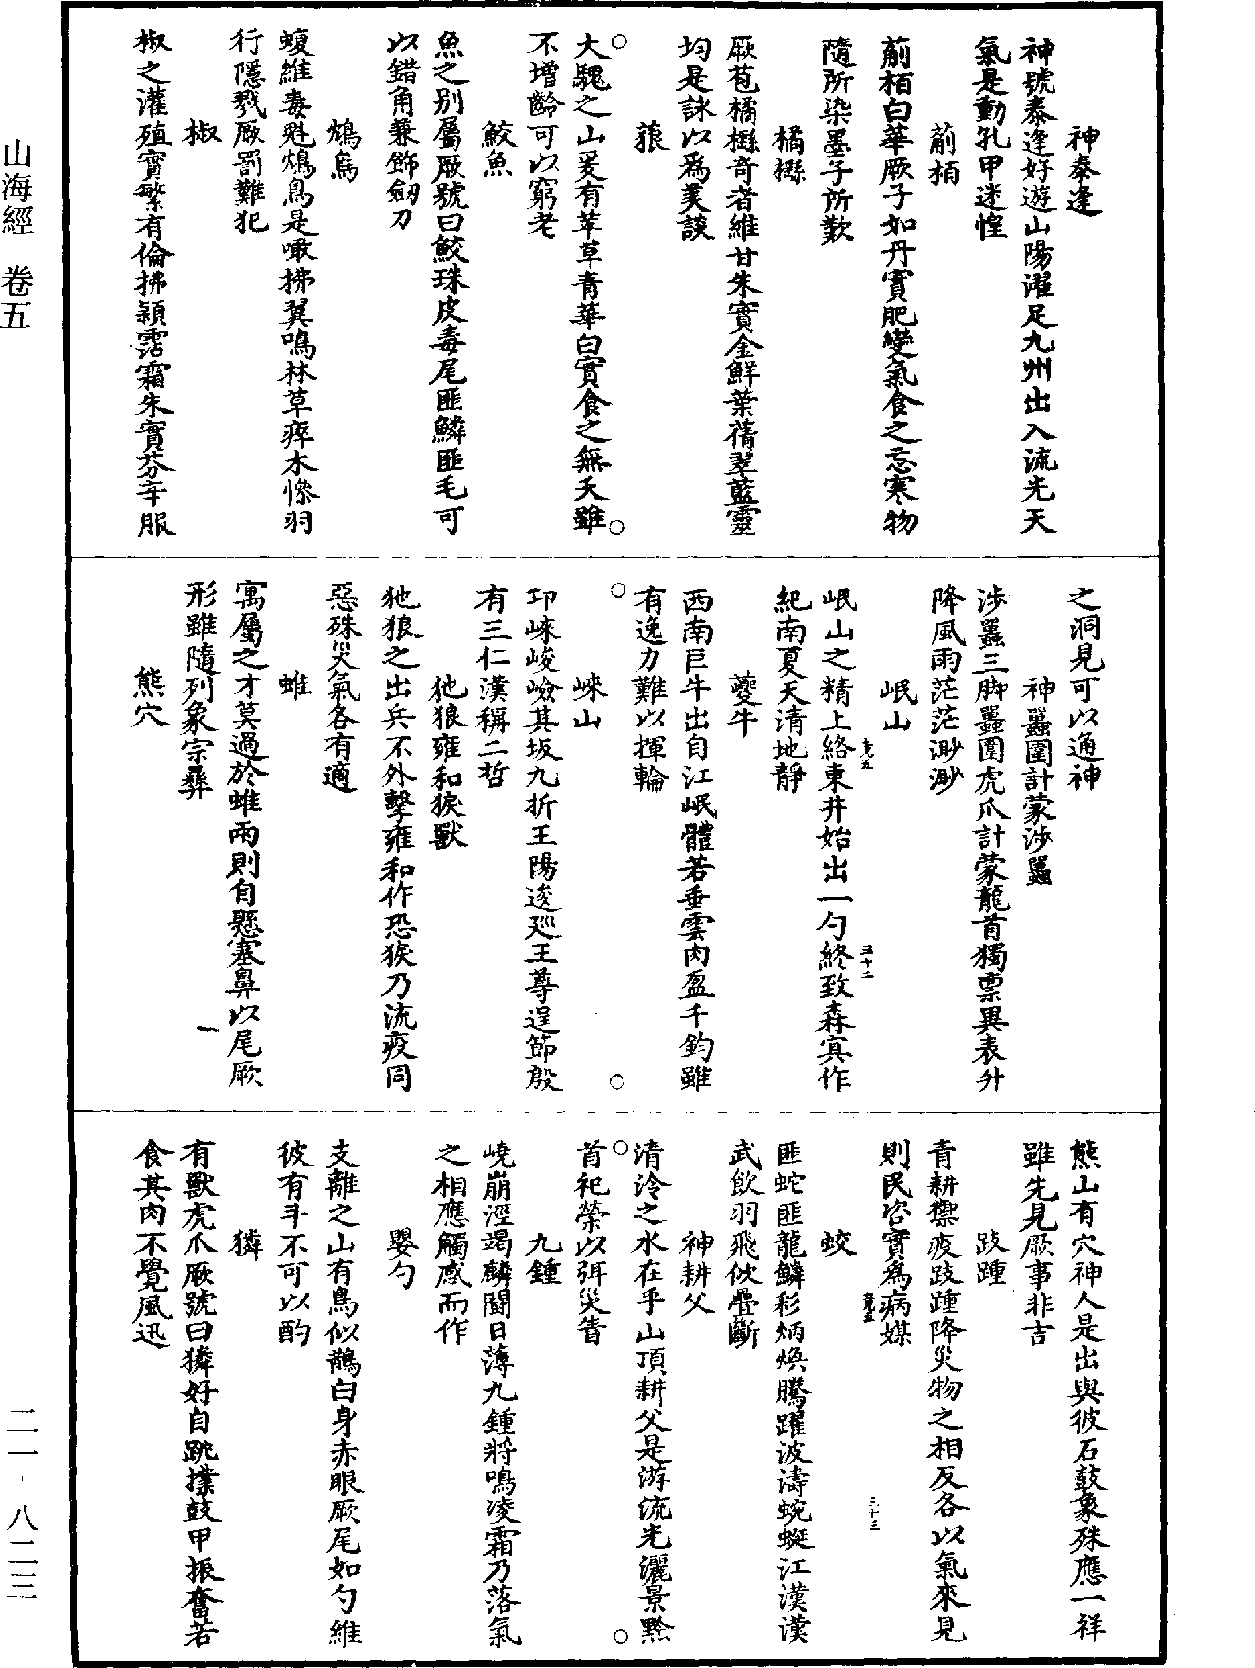 山海經　卷五
神泰逢
神號泰逢好遊山陽濯足九州出入流光天
氣是動孔甲迷惶
萴栢
萴栢白華厥子如丹實肥變氣食之忘寒物
隨所染墨子所歎
橘櫾
厥苞橘櫾奇者維甘朱實金鮮葉蒨翠藍靈
均是詠以爲美談
蒗
大騩之山爰有苹草青華白實食之無夭雖
不增齡可以窮老
鮫魚
魚之别屬厥號曰鮫珠皮毒尾匪鱗匪毛可
以錯角兼飾劒刀
鴆鳥
蝮維毒魁鴆鳥是噉拂翼鳴林草瘁木慘羽
行隱戮厥罰難犯
椒
椒之灌殖實繁有倫拂穎霑霜朱實芬辛服
之洞見可以通神
神䵷圍計蒙涉䵷
涉䵷三脚䵷圍虎爪計蒙龍首獨禀異表升
降風雨茫茫渺渺
岷山
岷山之精上絡東井始出一勺終致森冥作
紀南夏天清地靜
夔牛
西南巨牛出自江岷體若垂雲肉盈千鈞雖
有逸力難以揮輪
崍山
邛崍峻嶮其坂九折王陽逡廵王尊逞節殷
有三仁漢稱二哲
狏狼雍和㹶獸
狏狼之出兵不外擊雍和作恐㹶乃流疫同
惡殊災氣各有適
蜼
寓屬之才莫過於蜼雨則自懸塞鼻以尾厥
形雖隨列象宗彝
熊穴
熊山有穴神人是出與彼石鼓象殊應一祥
雖先見厥事非吉
跂踵
青耕禦疫跂踵降災物之相反各以氣來見
則民咨實爲病媒
蛟
匪蛇匪龍鱗彩炳煥騰躍波濤蜿蜒江漢漢
武飲羽飛佽疊斷
神耕父
清泠之水在乎山頂耕父是游流光灑景黙
首祀禜以弭災眚
九鍾
嶢崩涇竭麟鬭日薄九鍾將鳴凌霜乃落氣
之相應觸感而作
嬰勺
支離之山有鳥似鵲白身赤眼厥尾如勺維
彼有斗不可以酌
獜
有獸虎爪厥號曰獜好自跳撲鼓甲振奮若
食其肉不覺風迅
三十二
三十三
二一-八二三